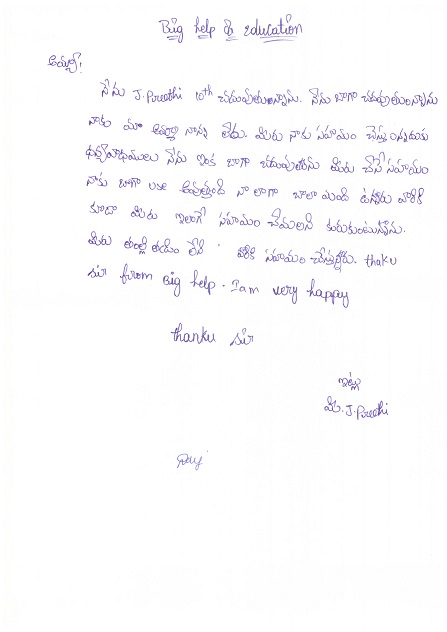 Big help & education
అమ్మా!
నేను J. Preethi 10th చదువుతున్నాను. నేను బాగా చదువుతున్నాను
నాకు మా అమ్మా నాన్న లేరు. మీరు నాకు సహయం చేస్తున్నందుకు
ధన్యవాధములు నేను ఇంక బాగా చదువుతాను మీరు చేసే సహాయం
నాకు బాగా use అవుత్తుంది నా లాగా చాలా మంది ఉన్నారు వారికి
కూడా మీరు ఇలాగే సహాయం చేయాలని కురుకుంటున్నాను.
మీరు తల్లి తండ్రి లేని వారికి సహాయం చేస్తున్నారు. thaku
sir from Big help. I am very happy
thanku sir
ఇట్లు
మీ. J. Preethi